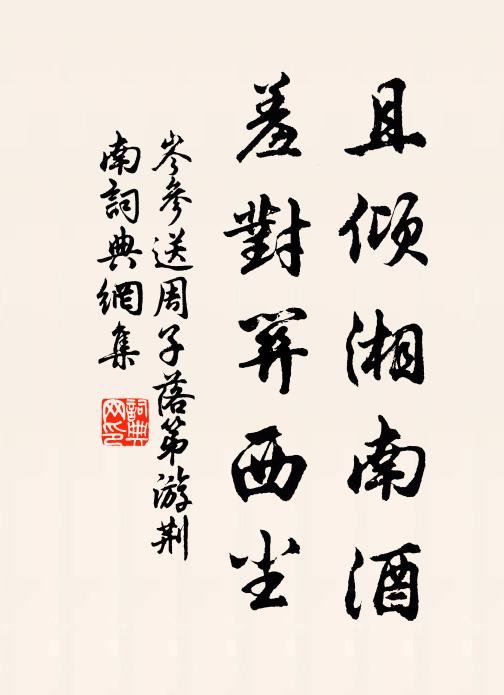 且倾湘南酒
羞對關西尘
岑參送周子落第游荆
南詞典網集
詞典网印